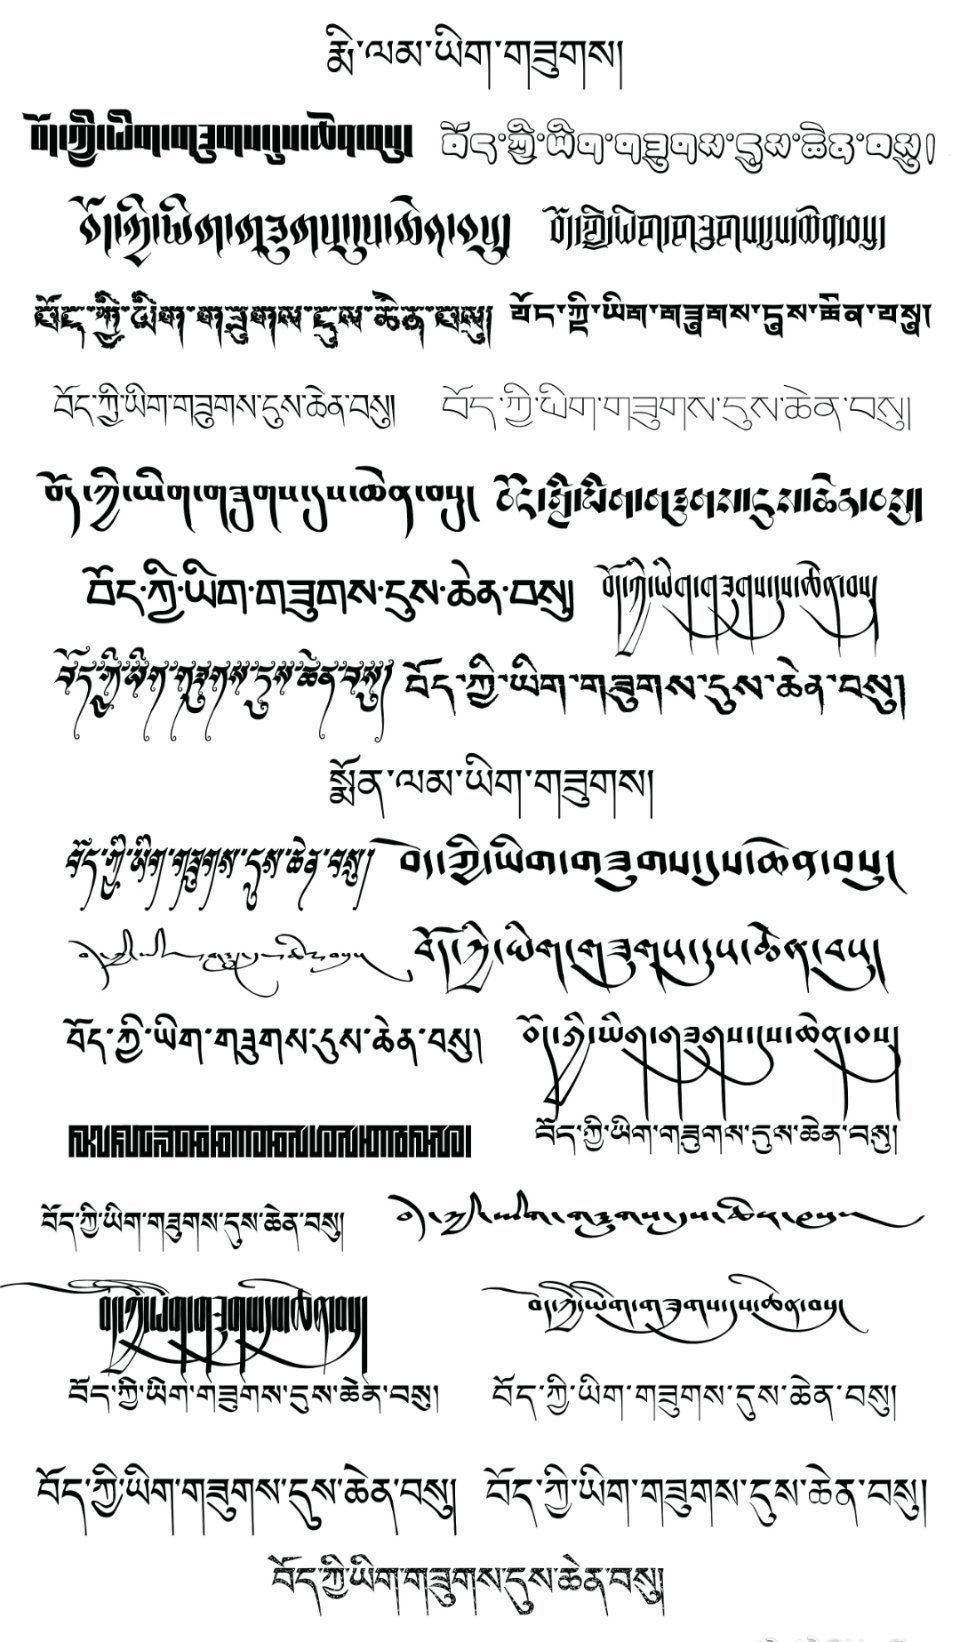 རྨི་ལམ་ཡིག་གཟུགས།
བོད་ཀྱི་ཡིག་གཟུགས་དུས་ཆེན་བསུ། བོད་ཀྱི་ཡིག་གཟུགས་དུས་ཆེན་བསུ།
བོད་ཀྱི་ཡིག་གཟུགས་དུས་ཆེན་བསུ། བོད་ཀྱི་ཡིག་གཟུགས་དུས་ཆེན་བསུ།
བོད་ཀྱི་ཡིག་གཟུགས་དུས་ཆེན་བསུ། བོད་ཀྱི་ཡིག་གཟུགས་དུས་ཆེན་བསུ།
བོད་ཀྱི་ཡིག་གཟུགས་དུས་ཆེན་བསུ། བོད་ཀྱི་ཡིག་གཟུགས་དུས་ཆེན་བསུ།
བོད་ཀྱི་ཡིག་གཟུགས་དུས་ཆེན་བསུ། བོད་ཀྱི་ཡིག་གཟུགས་དུས་ཆེན་བསུ།
བོད་ཀྱི་ཡིག་གཟུགས་དུས་ཆེན་བསུ། བོད་ཀྱི་ཡིག་གཟུགས་དུས་ཆེན་བསུ།
བོད་ཀྱི་ཡིག་གཟུགས་དུས་ཆེན་བསུ། བོད་ཀྱི་ཡིག་གཟུགས་དུས་ཆེན་བསུ།
སྨོན་ལམ་ཡིག་གཟུགས།
བོད་ཀྱི་ཡིག་གཟུགས་དུས་ཆེན་བསུ། བོད་ཀྱི་ཡིག་གཟུགས་དུས་ཆེན་བསུ།
བོད་ཀྱི་ཡིག་གཟུགས་དུས་ཆེན་བསུ། བོད་ཀྱི་ཡིག་གཟུགས་དུས་ཆེན་བསུ།
བོད་ཀྱི་ཡིག་གཟུགས་དུས་ཆེན་བསུ། བོད་ཀྱི་ཡིག་གཟུགས་དུས་ཆེན་བསུ།
བོད་ཀྱི་ཡིག་གཟུགས་དུས་ཆེན་བསུ།
བོད་ཀྱི་ཡིག་གཟུགས་དུས་ཆེན་བསུ། བོད་ཀྱི་ཡིག་གཟུགས་དུས་ཆེན་བསུ།
བོད་ཀྱི་ཡིག་གཟུགས་དུས་ཆེན་བསུ། བོད་ཀྱི་ཡིག་གཟུགས་དུས་ཆེན་བསུ།
བོད་ཀྱི་ཡིག་གཟུགས་དུས་ཆེན་བསུ། བོད་ཀྱི་ཡིག་གཟུགས་དུས་ཆེན་བསུ།
བོད་ཀྱི་ཡིག་གཟུགས་དུས་ཆེན་བསུ། བོད་ཀྱི་ཡིག་གཟུགས་དུས་ཆེན་བསུ།
བོད་ཀྱི་ཡིག་གཟུགས་དུས་ཆེན་བསུ།